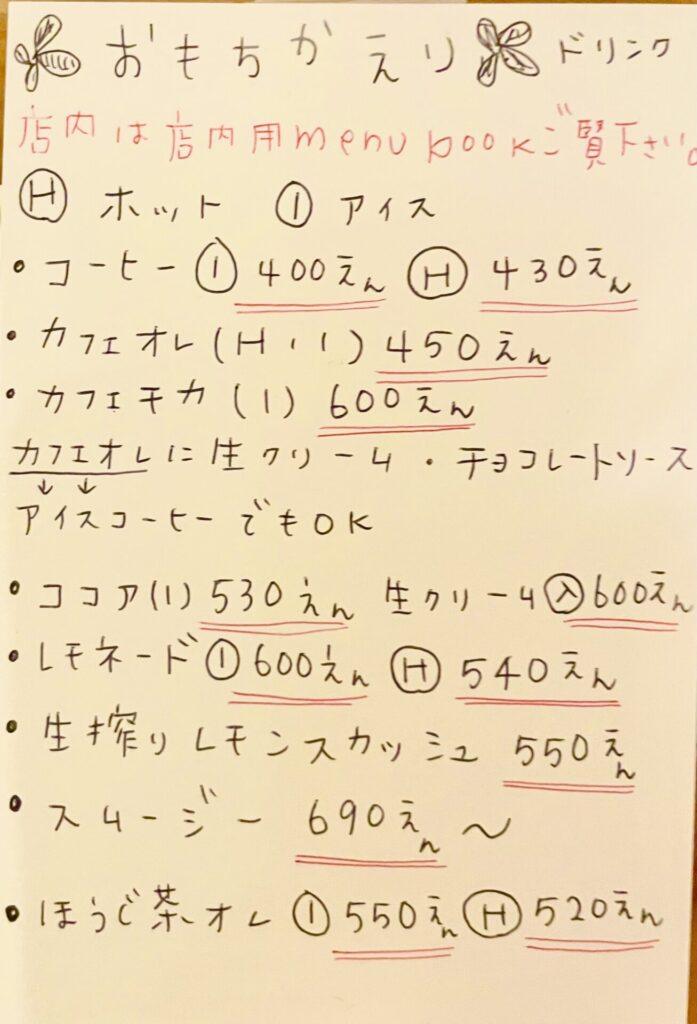 おもちかえり ドリンク
店内は店内用menu bookご覧下さい。
Ⓗ ホット Ⓘ アイス
・コーヒー Ⓘ 400えん Ⓗ 430えん
・カフェオレ(H・I) 450えん
・カフェモカ (I) 600えん
カフェオレに生クリーム・チョコレートソース
↓ ↓
アイスコーヒーでもOK
・ココア(I) 530えん 生クリーム㊅600えん
・レモネード Ⓘ 600えん Ⓗ 540えん
・生搾りレモンスカッシュ 550えん
・スムージー 690えん〜
・ほうじ茶オレ Ⓘ 550えん Ⓗ 520えん